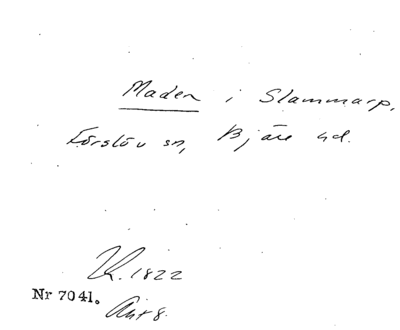 Maden i Slammarp,
Förslöv sn, Bjäre hd.
1822
Nr 7041.